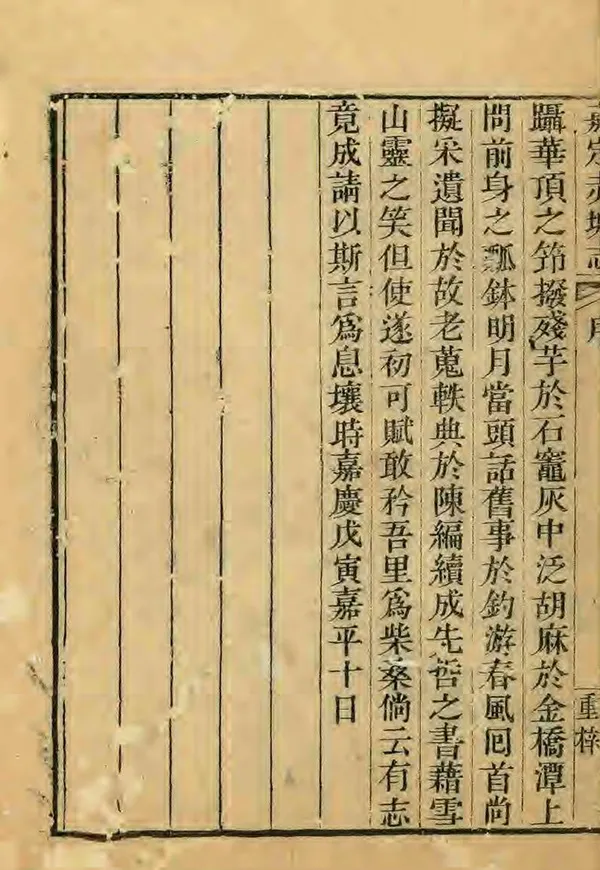 嘉定赤城志 序 重梓
躡華頂之筇撥殘芋於石竈灰中泛胡麻於金橋潭上
問前身之瓢鉢明月當頭話舊事於釣游春風囘首尙
擬采遺聞於故老蒐軼典於陳編續成先哲之書藉雪
山靈之笑但使遂初可賦敢矜吾里爲柴桑倘云有志
竟成請以斯言爲息壤時嘉慶戊寅嘉平十日